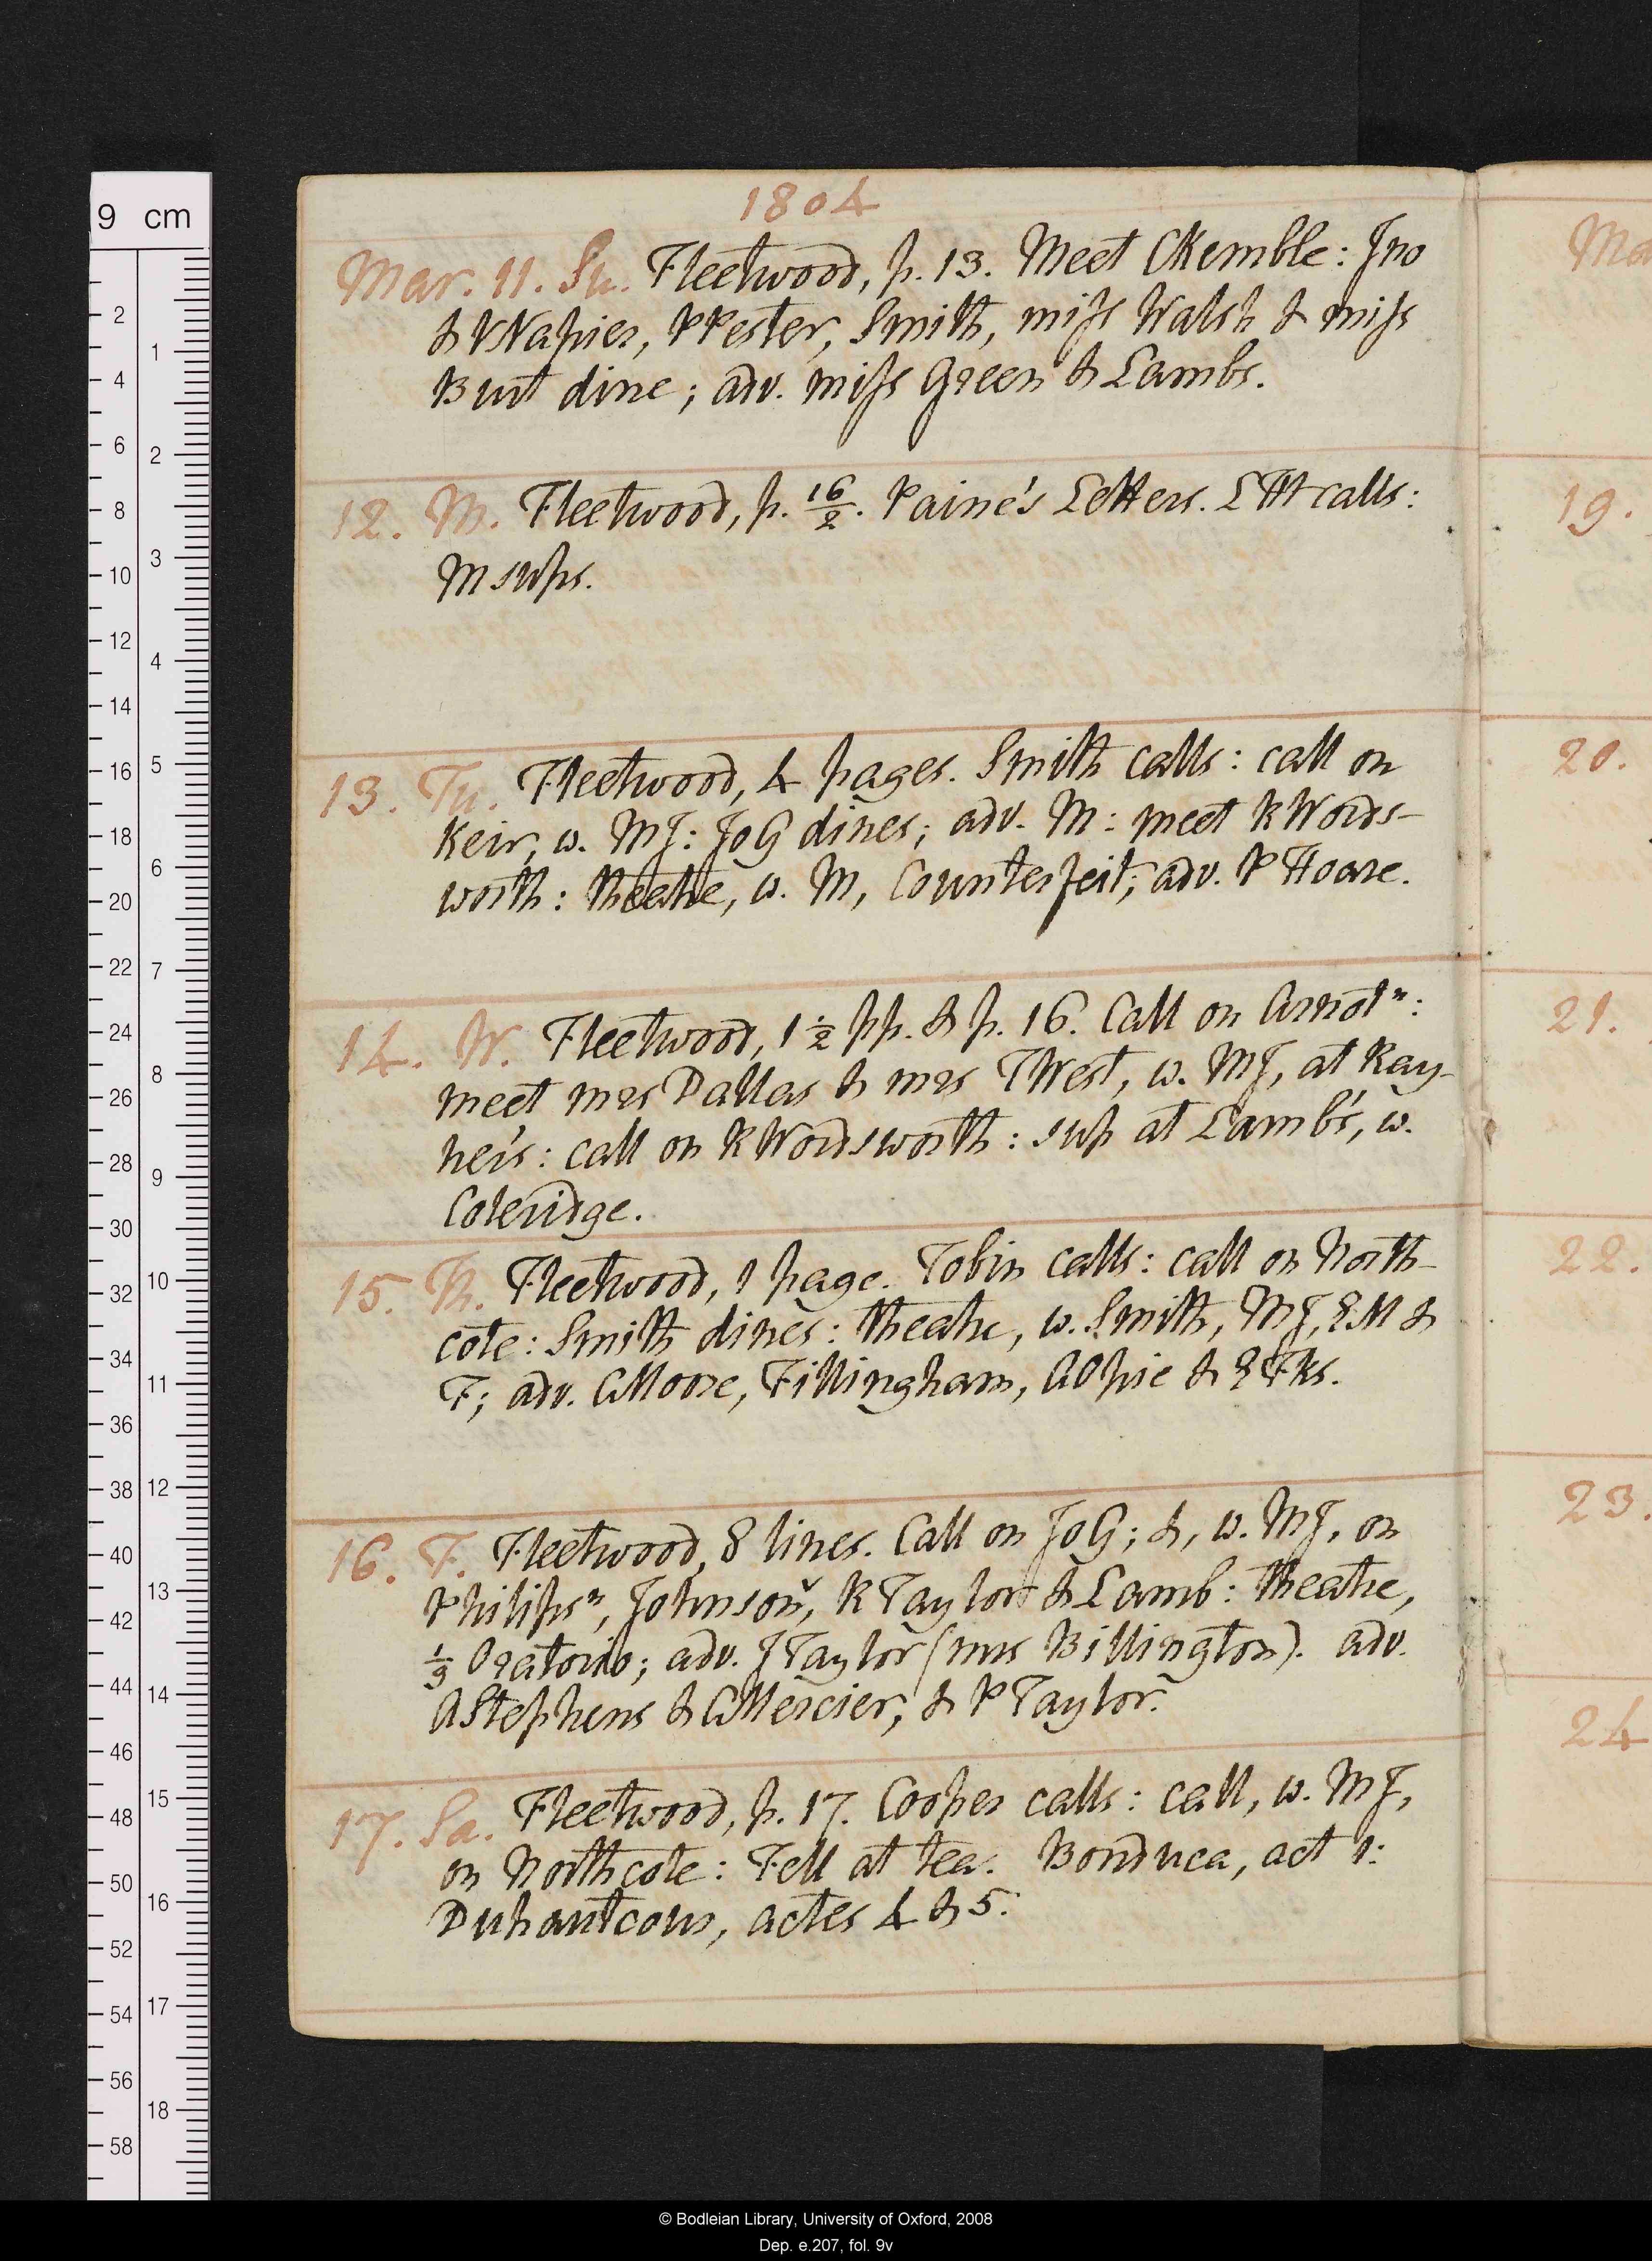 1804
Mar. 11. Su. Fleetwood, p. 13. Meet CKemble: Jno
& VNapier, PPester, Smith, miſs Walsh & miſs
Burt dine; adv. miſs Green & Lambs.
12. M. Fleetwood, p. 16/2. Paine's Letters. LHt calls:
M sups.
13. Tu. Fleetwood, 4 pages. Smith calls: call on
Keir, w. MJ: JoG dines; adv. M: meet RWords-
worth: theatre, w. M, Counterfeit; adv. PHoare.
14. W. Fleetwood, 1 1/2 pp. & p. 16. Call on Arnotⁿ:
meet mrs Dallas & mrs TWest, w. MJ, at Ray-
ner's: call on RWordsworth: sup at Lamb's, w.
Coleridge.
15. Th. Fleetwood, 1 page. Tobin calls: call on North-
cote: Smith dines: theatre, w. Smith, MJ, & M &
F; adv. AMoore, Fillingham, AOpie & & Fks.
16. F. Fleetwood, 8 lines. Call on JoG; &, w. MJ, on
Philipsⁿ, Johnsonⁿ, RTaylor & Lamb: theatre,
1/3 Oratorio; adv. JTaylor (mrs Billington). adv.
AStephens & CMercier, & PTaylor.
17. Sa. Fleetwood, p. 17. Cooper calls: call, w. MJ,
on Northcote: Fell at tea. Bonduca, act 1:
Duhautcours, actes 4 & 5.
Ma
19.
20.
21.
22.
23.
24
9 cm
2
4
6
8
10
12
14
16
18
20
22
24
26
28
30
32
34
36
38
40
42
44
46
48
50
52
54
56
58
1
2
3
4
5
6
7
8
9
10
11
12
13
14
15
16
17
18
© Bodleian Library, University of Oxford, 2008
Dep. e.207, fol. 9v